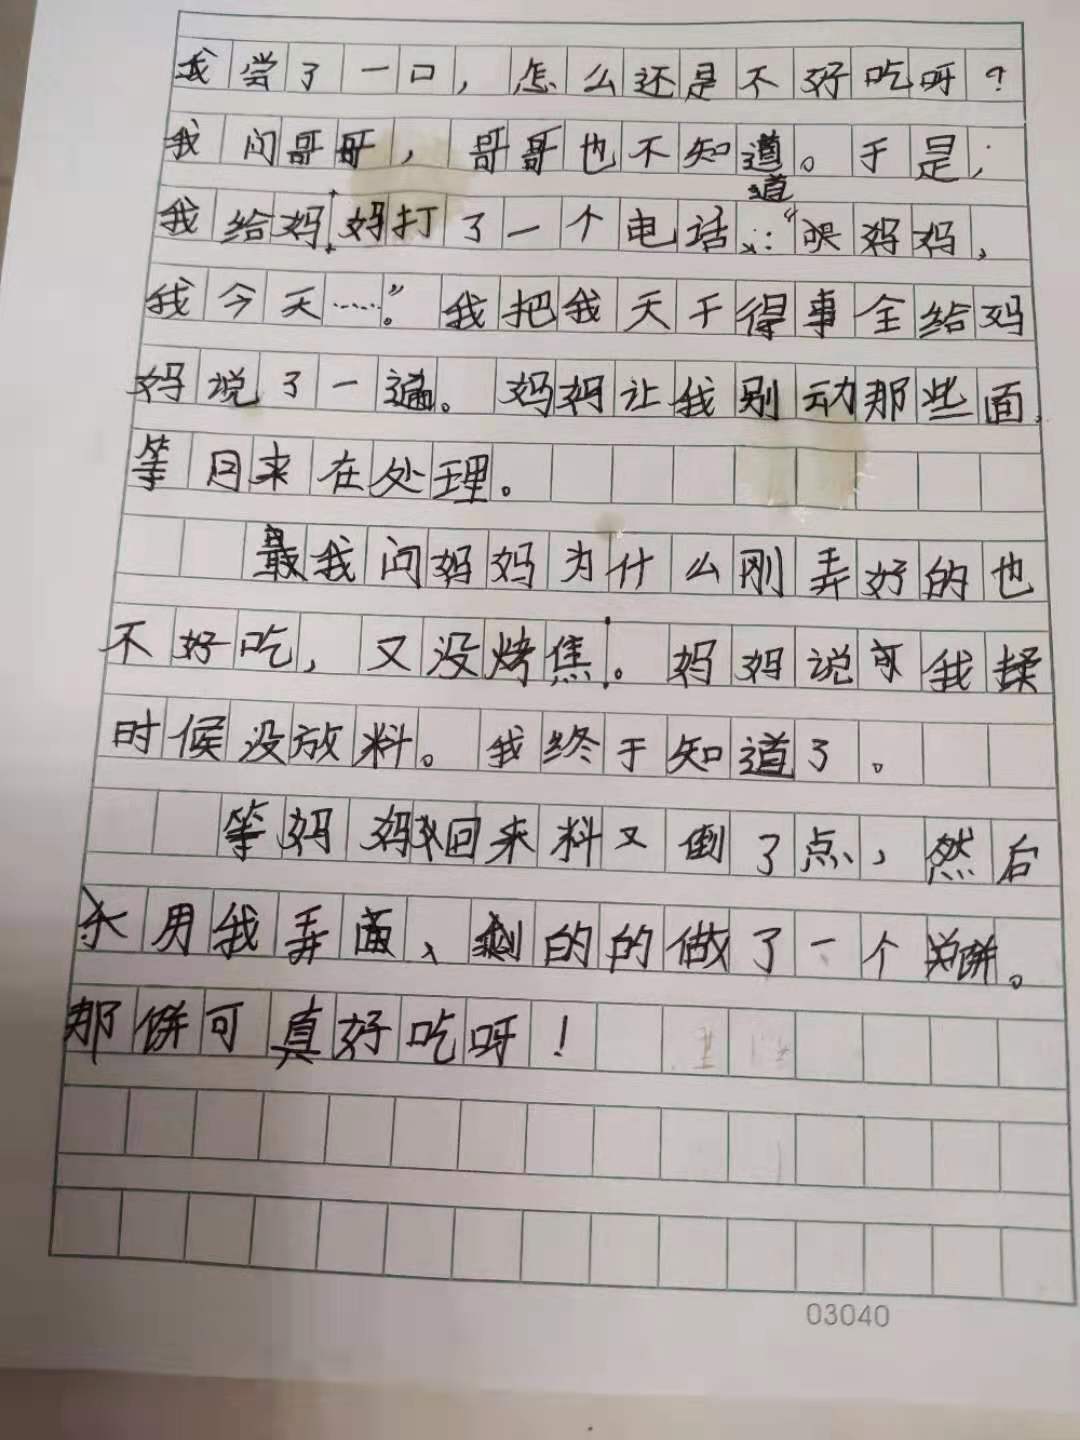 我尝了一口，怎么还是不好吃呀？
我问哥哥，哥哥也不知道。于是；
道
我给妈妈打了一个电话：“哎妈妈，
我今天……。”我把我天干得事全给妈
妈说了一遍。妈妈让我别动那些面，
等回来在处理。
最我问妈妈为什么刚弄好的也
不好吃，又没烤焦。妈妈说可我揉
时候没放料。我终于知道了。
等妈妈回来料又倒了点，然后
用我弄面、剩的的做了一个饼。
那饼可真好吃呀！
03040